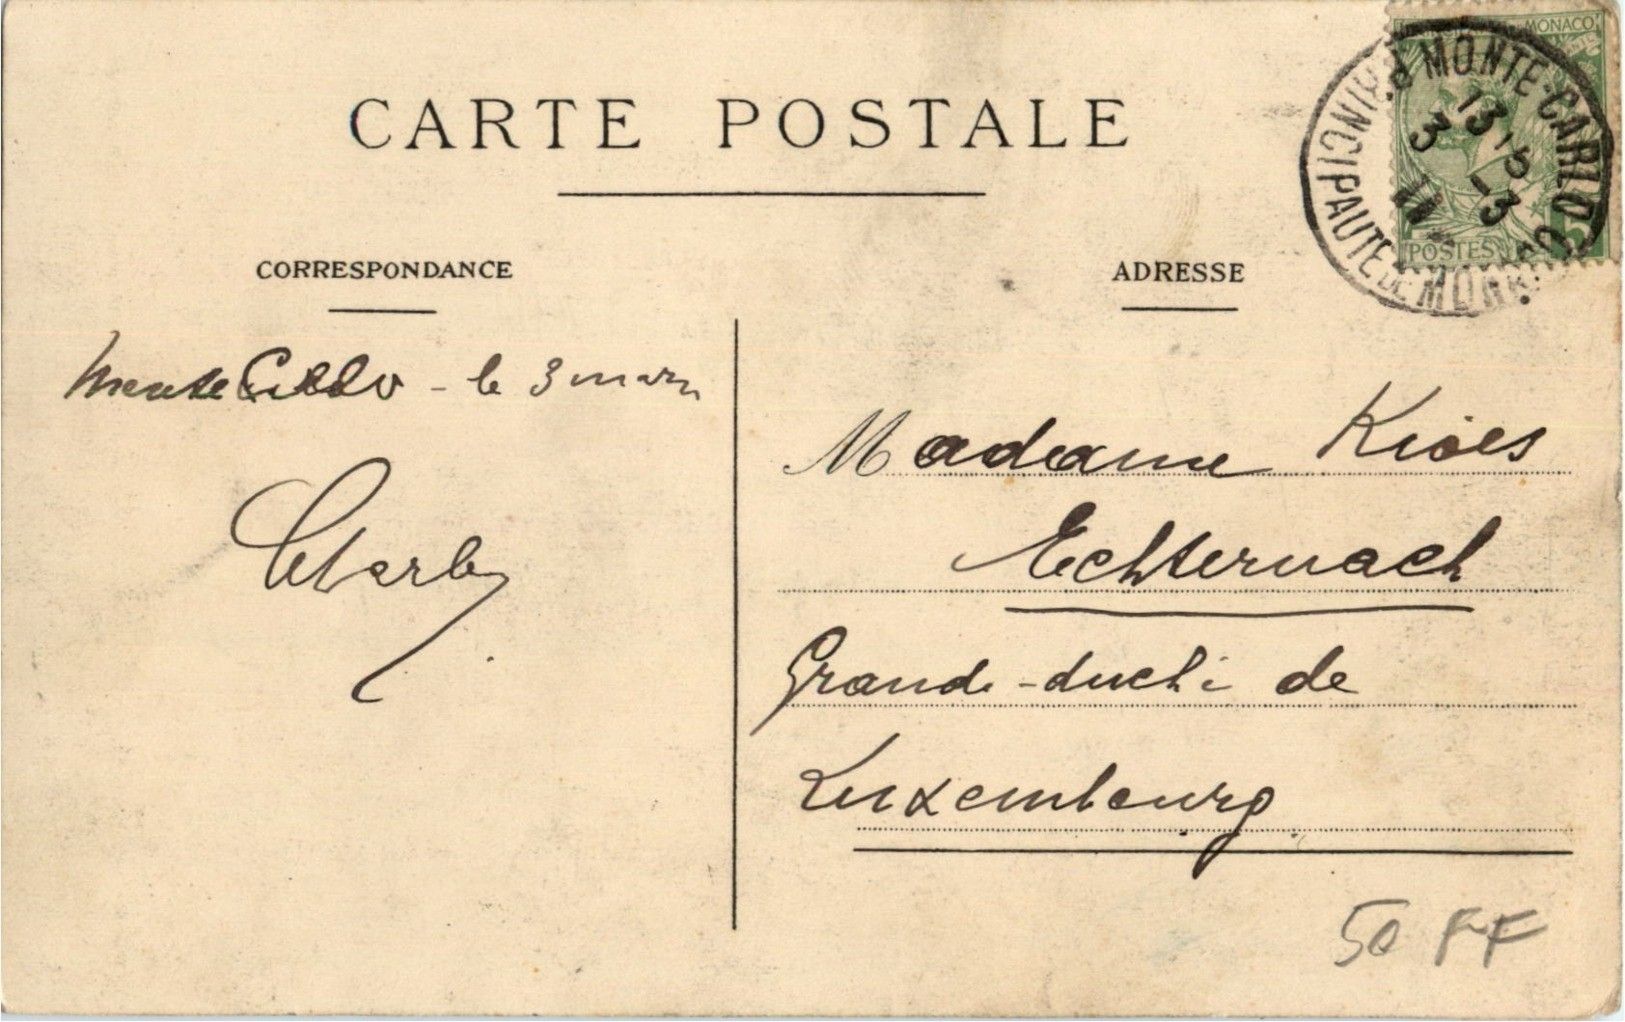 CARTE POSTALE
CORRESPONDANCE
ADRESSE
MONACO
POSTES
MONTE-CARLO
PRINCIPAUTE DE MONACO
13 15
3 -3
11
Monte Carlo - le 3 mars
Charles
Madame
Echternach
Grand-duché de
Luxembourg
50 FF